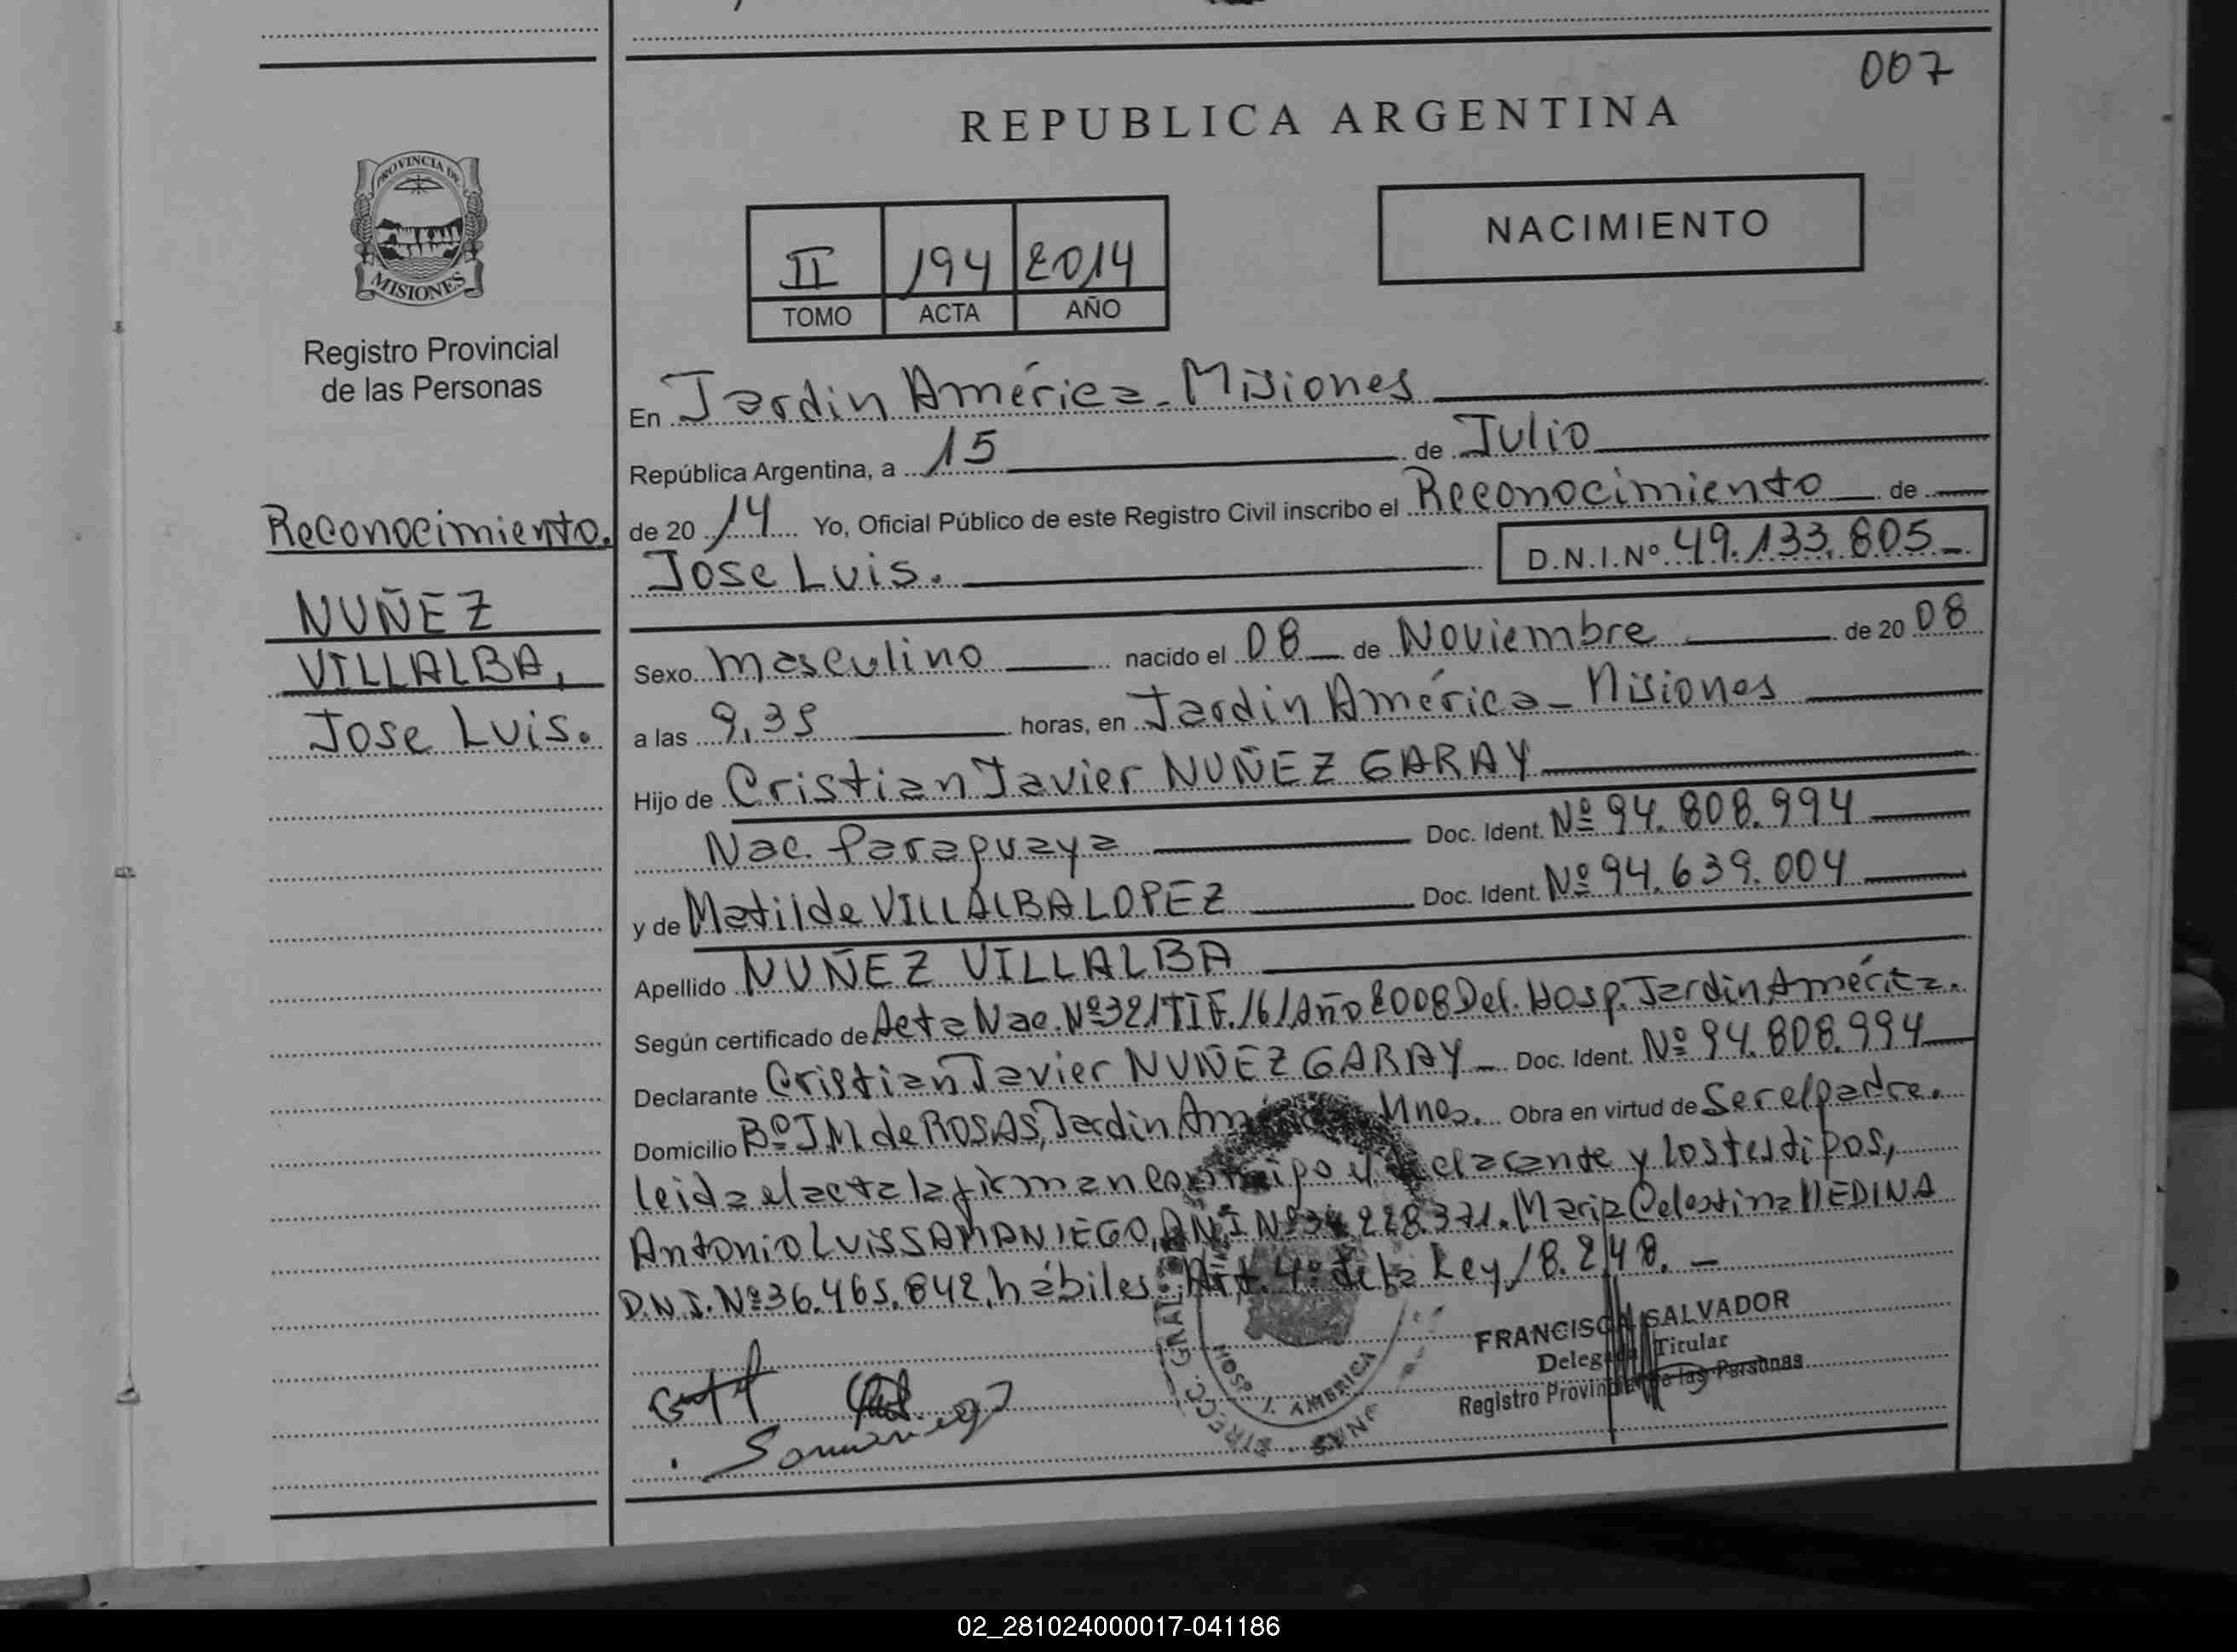 007
REPUBLICA ARGENTINA
PROVINCIA DE
MISIONES
Registro Provincial
de las Personas
II 194 2014
TOMO ACTA AÑO
NACIMIENTO
Reconocimiento.
NUÑEZ
VILLALBA,
Jose Luis.
En Jardin América - Misiones
República Argentina, a 15 de Julio
de 20 14 Yo, Oficial Público de este Registro Civil inscribo el Reconocimiento de
Jose Luis. D.N.I.Nº 49.133.805
Sexo masculino nacido el 08 de Noviembre de 20 08
a las 9,35 horas, en Jardin América - Misiones
Hijo de Cristian Javier NUÑEZ GARAY
Nac. Paraguaya Doc. Ident. Nº 94.808.994
y de Matilde VILLALBA LOPEZ Doc. Ident. Nº 94.639.004
Apellido NUÑEZ VILLALBA
Según certificado de Acta Nac. Nº 321 Tº I F. 161 Año 2008 Del. Hosp. Jardin América.
Declarante Cristian Javier NUÑEZ GARAY - Doc. Ident. Nº 94.808.994
Domicilio Bº J M de ROSAS, Jardin Mnes. Obra en virtud de Ser el padre.
leida el acta la firman conmigo el declarante y los testigos,
Antonio Luis SAMANIEGO, D.N.I Nº 34.228.371. Maria Celestina MEDINA
D.N.I. Nº 36.465.842, hábiles. Art. 4º de la Ley 18.248. -
FRANCISCA SALVADOR
Delegada Titular
Registro Provincial de las Personas
Samaniego
HOSP. J. AMERICA
02_281024000017-041186